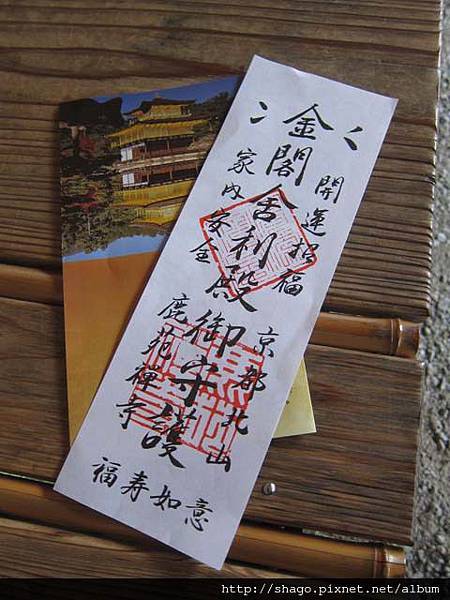 金閣舍利殿御守護
開運招福
家内安全
京都北山
鹿苑禅寺
福寿如意
http://shago.pixnet.net/album